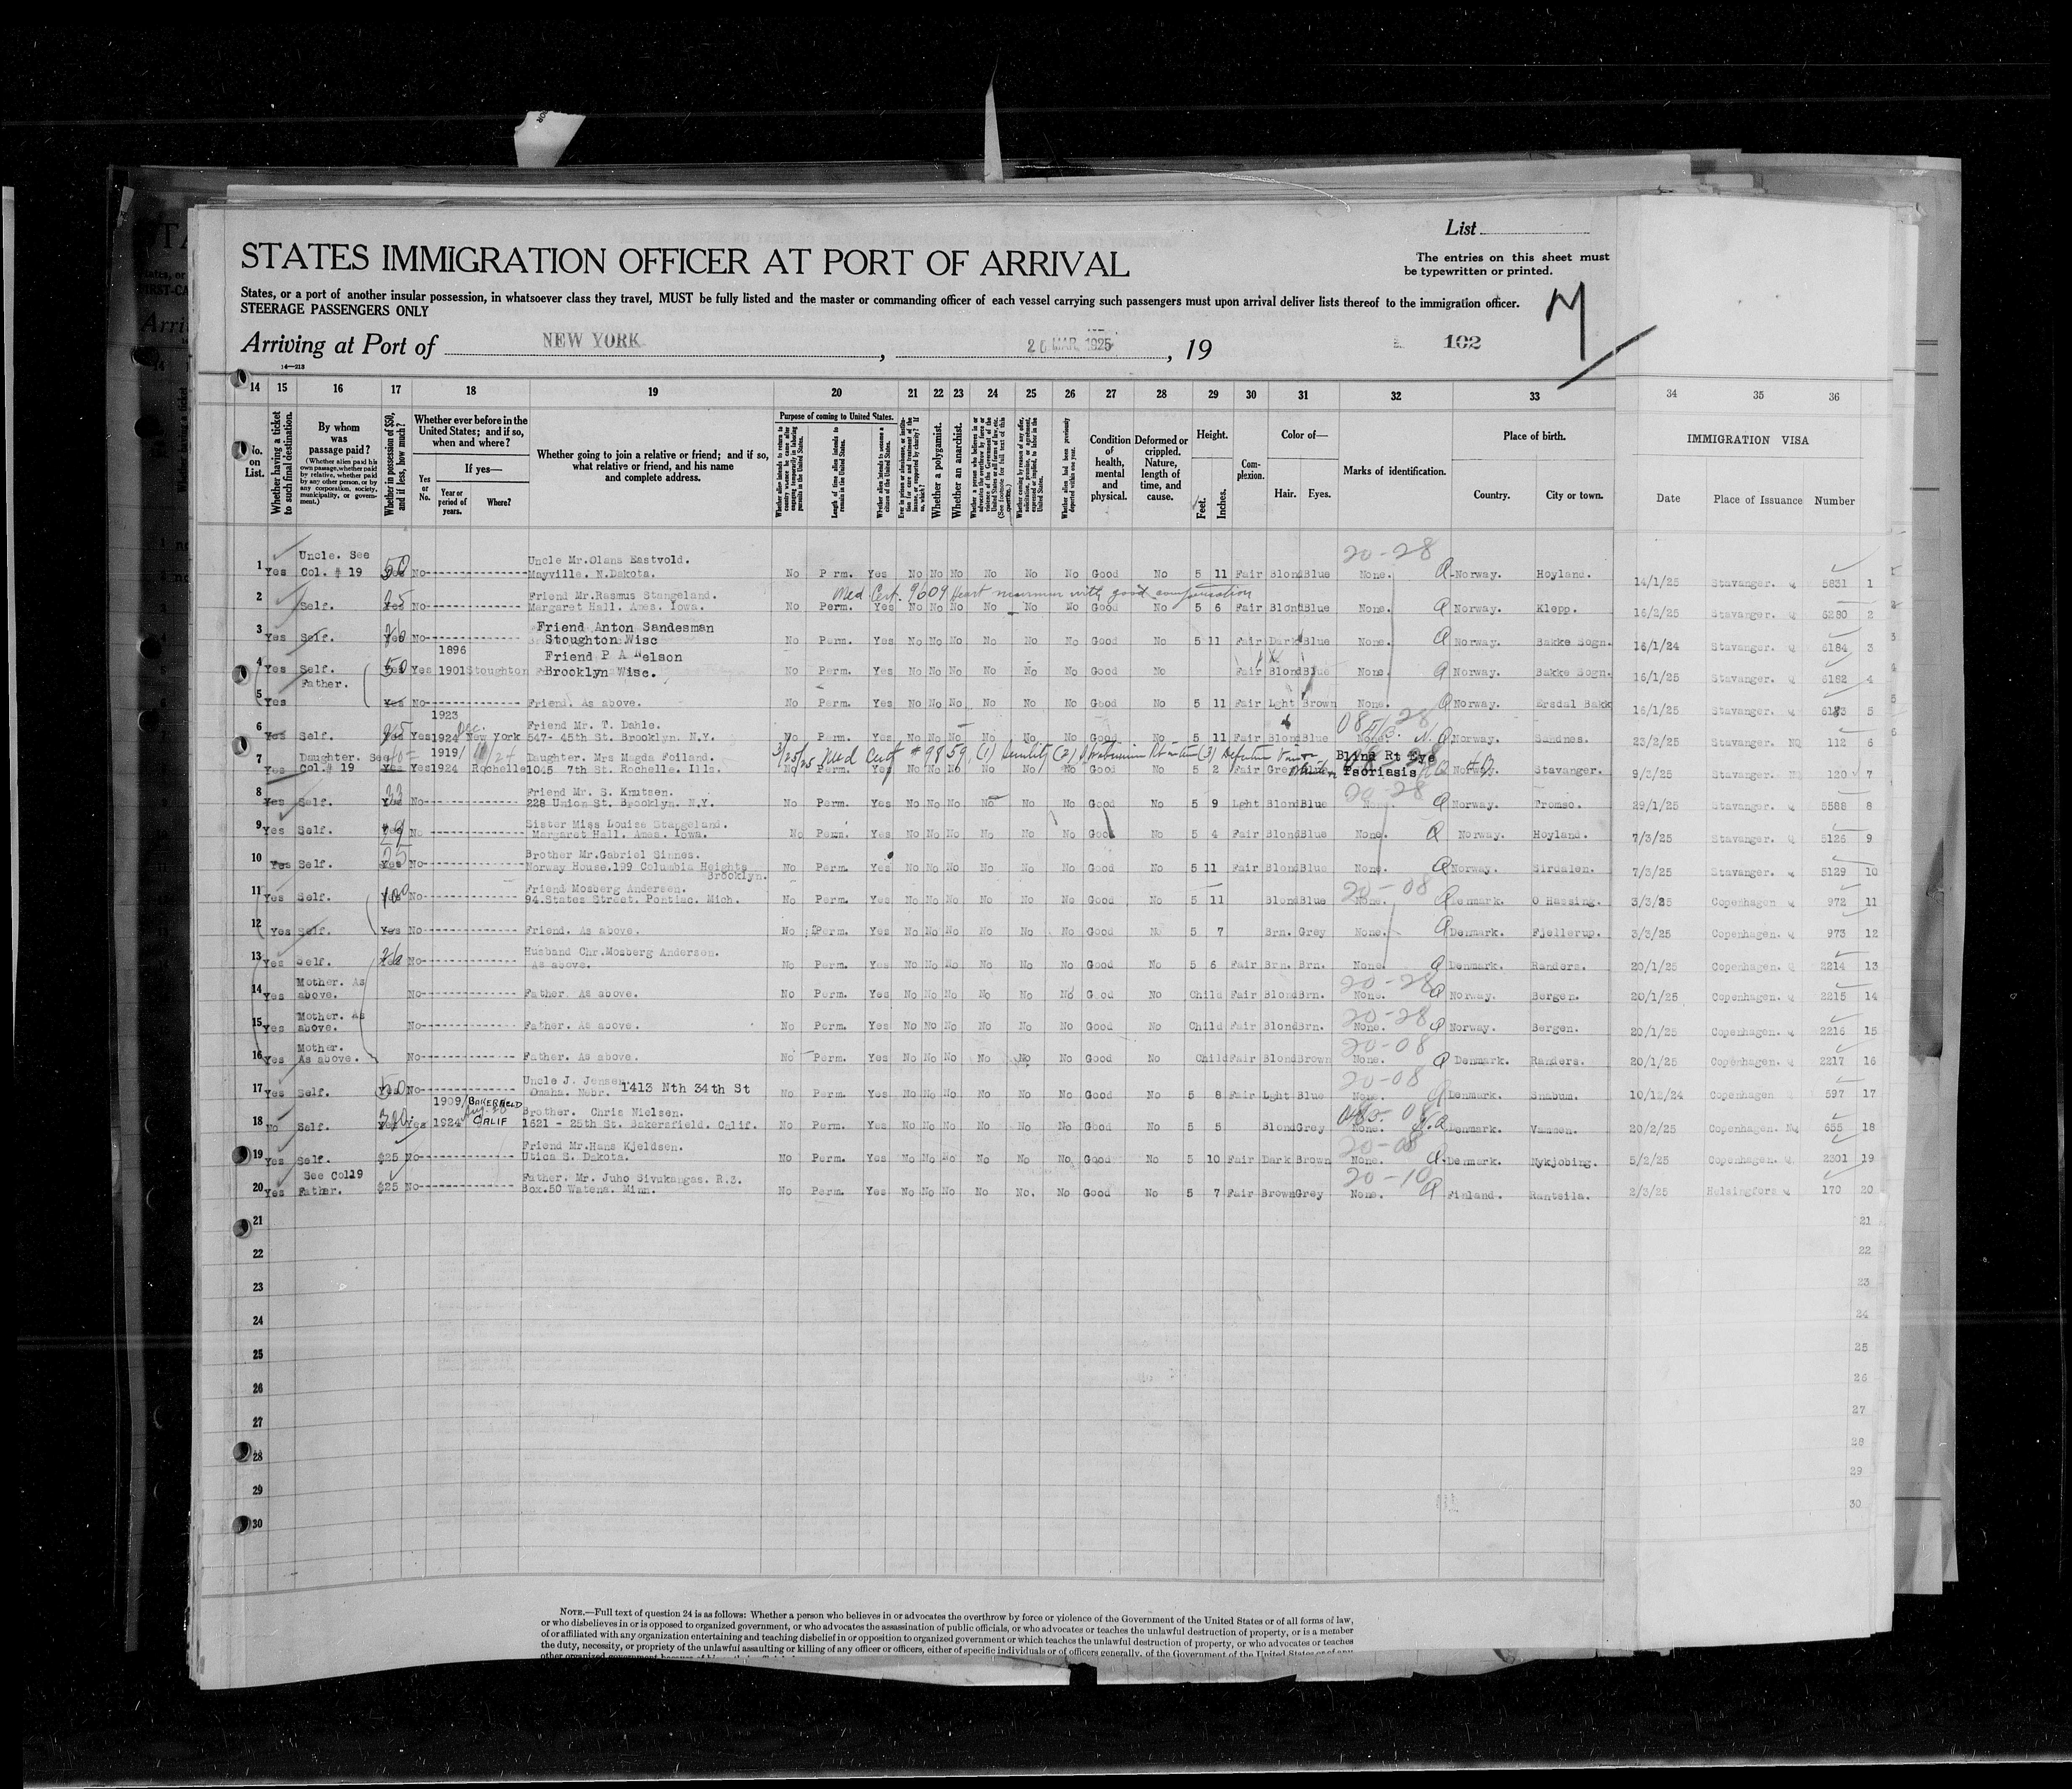 List
STATES IMMIGRATION OFFICER AT PORT OF ARRIVAL
The entries on this sheet must
be typewritten or printed.
States, or a port of another insular possession, in whatsoever class they travel, MUST be fully listed and the master or commanding officer of each vessel carrying such passengers must upon arrival deliver lists thereof to the immigration officer.
STEERAGE PASSENGERS ONLY
M
Arriving at Port of NEW YORK , MAR. 1925 , 19 102
14—213
14 15 16 17 18 19 20 21 22 23 24 25 26 27 28 29 30 31 32 33 34 35 36
No. on List.
Whether having a ticket to such final destination.
By whom was passage paid?
(Whether alien paid his own passage, whether paid by relative, whether paid by any other person, or by any corporation, society, municipality, or government.)
Whether in possession of $50, and if less, how much?
Whether ever before in the United States; and if so, when and where?
Yes or No.
If yes—
Year or period of years.
Where?
Whether going to join a relative or friend; and if so, what relative or friend, and his name and complete address.
Purpose of coming to United States.
Length of time alien intends to remain in the United States.
Whether alien intends to become a citizen of the United States.
Whether a polygamist.
Whether an anarchist.
Condition of health, mental and physical.
Deformed or crippled. Nature, length of time, and cause.
Height.
Feet. Inches.
Complexion.
Color of—
Hair. Eyes.
Marks of identification.
Place of birth.
Country. City or town.
IMMIGRATION VISA
Date Place of Issuance Number
20-28
1 Yes Uncle. See Col. # 19 50 No Uncle Mr.Olans Eastvold. Mayville. N.Dakota. No P rm. Yes No No No No No No Good No 5 11 Fair Blond Blue None. Q Norway. Hoyland. 14/1/25 Stavanger. 5831 1
Med Cert. 9609 Heart murmur with good compensation
2 Self. 25 Yes No Friend Mr.Rasmus Stangeland. Margaret Hall. Ames. Iowa. No Perm. Yes No No No No No No Good No 5 6 Fair Blond Blue None. Q Norway. Klepp. 16/2/25 Stavanger. 6280 2
3 Yes Self. Yes No Friend Anton Sandesman Stoughton Wisc No Perm. Yes No No No No No No Good No 5 11 Fair Dark Blue None. Q Norway. Bakke Sogn. 16/1/24 Stavanger. 6184 3
4 Yes Self. 50 Yes 1896 1901 Stoughton Friend P A Nelson Brooklyn Wisc. No Perm. Yes No No No No No No Good No Fair Blond Blue None. Q Norway. Bakke Sogn. 16/1/25 Stavanger. 6182 4
5 Yes Father. Yes No Friend. As above. No Perm. Yes No No No No No No Good No 5 11 Fair Lght Brown None. Q Norway. Ersdal Bakk 16/1/25 Stavanger. 6183 5
6 Yes Self. Yes Yes 1923 1924 Dec. New York Friend Mr. T. Dahle. 547- 45th St. Brooklyn. N.Y. No Perm. Yes No No No No No No Good No 5 11 Fair Blond Blue None. N.Q Norway. Sandnes. 23/2/25 Stavanger. NQ 112 6
3/25/25 Med Cert # 9859, (1) Senility (2)
7 Yes Daughter. See Col.# 19 Yes Yes 1919/ 1924 Rochelle Daughter. Mrs Magda Foiland. 1045 7th St. Rochelle. Ills. No Perm. Yes No No No No No No Good No 5 2 Fair Grey Blind Rt Eye Psoriasis Norway. Stavanger. 9/3/25 Stavanger. 120 7
20-28
8 Yes Self. 33 No Friend Mr. S. Knutsen. 228 Union St. Brooklyn. N.Y. No Perm. Yes No No No No No No Good No 5 9 Lght Blond Blue None. Q Norway. Tromso. 29/1/25 Stavanger. 5588 8
9 Yes Self. Yes No Sister Miss Louise Stangeland. Margaret Hall. Ames. Iowa. No Perm. Yes No No No No No No Good No 5 4 Fair Blond Blue None. Q Norway. Hoyland. 7/3/25 Stavanger. 5125 9
10 Yes Self. 25 Yes No Brother Mr.Gabriel Sinnes. Norway House.199 Columbia Heights Brooklyn. No Perm. Yes No No No No No No Good No 5 11 Fair Blond Blue None. Q Norway. Sirdalen. 7/3/25 Stavanger. 5129 10
20-08
11 Yes Self. 100 No Friend Mosberg Andersen. 94.States Street. Pontiac. Mich. No Perm. Yes No No No No No No Good No 5 11 Blond Blue None. Q Denmark. O Hassing. 3/3/25 Copenhagen 972 11
12 Yes Self. Yes No Friend. As above. No Perm. Yes No No No No No No Good No 5 7 Brn. Grey None. Q Denmark. Fjellerup. 3/3/25 Copenhagen. 973 12
13 Yes Self. No Husband Chr.Mosberg Andersen. As above. No Perm. Yes No No No No No No Good No 5 6 Fair Brn. Brn. None. Q Denmark. Randers. 20/1/25 Copenhagen. 2214 13
20-28
14 Yes Mother. As above. No Father. As above. No Perm. Yes No No No No No No Good No Child Fair Blond Brn. None. Q Norway. Bergen. 20/1/25 Copenhagen. 2215 14
20-28
15 Yes Mother. As above. No Father. As above. No Perm. Yes No No No No No No Good No Child Fair Blond Brn. None. Q Norway. Bergen. 20/1/25 Copenhagen. 2216 15
20-08
16 Yes Mother. As above. No Father. As above. No Perm. Yes No No No No No No Good No Child Fair Blond Brown None. Q Denmark. Randers. 20/1/25 Copenhagen. 2217 16
20-08
17 Yes Self. 50 No Uncle J. Jensen 1413 Nth 34th St Omaha. Nebr. No Perm. Yes No No No No No No Good No 5 8 Fair Lght Blue None. Q Denmark. Snabum. 10/12/24 Copenhagen 597 17
18 No Self. 300 Yes 1909/ 1924 BAKERFIELD CALIF Brother. Chris Nielsen. 1621 - 25th St. Bakersfield. Calif. No Perm. Yes No No No No No No Good No 5 5 Blond Grey None. N.Q Denmark. 20/2/25 Copenhagen. NQ 655 18
20-08
19 Yes Self. $25 No Friend Mr.Hans Kjeldsen. Utica S. Dakota. No Perm. Yes No No No No No No Good No 5 10 Fair Dark Brown None. Q Denmark. Nykjobing. 5/2/25 Copenhagen. 2301 19
20-10
20 Yes See Col19 Father. $25 No Father. Mr. Juho Sivukangas. R.3. Box.50 Watena. Minn. No Perm. Yes No No No No No. No Good No 5 7 Fair Brown Grey None. Q Finland. Rantsila. 2/3/25 Helsingfors 170 20
21 21
22 22
23 23
24 24
25 25
26 26
27 27
28 28
29 29
30 30
NOTE.—Full text of question 24 is as follows: Whether a person who believes in or advocates the overthrow by force or violence of the Government of the United States or of all forms of law,
or who disbelieves in or is opposed to organized government, or who advocates the assassination of public officials, or who advocates or teaches the unlawful destruction of property, or is a member
of or affiliated with any organization entertaining and teaching disbelief in or opposition to organized government or which teaches the unlawful destruction of property, or who advocates or teaches
the duty, necessity, or propriety of the unlawful assaulting or killing of any officer or officers, either of specific individuals or of officers generally, of the Government of the United States or of any